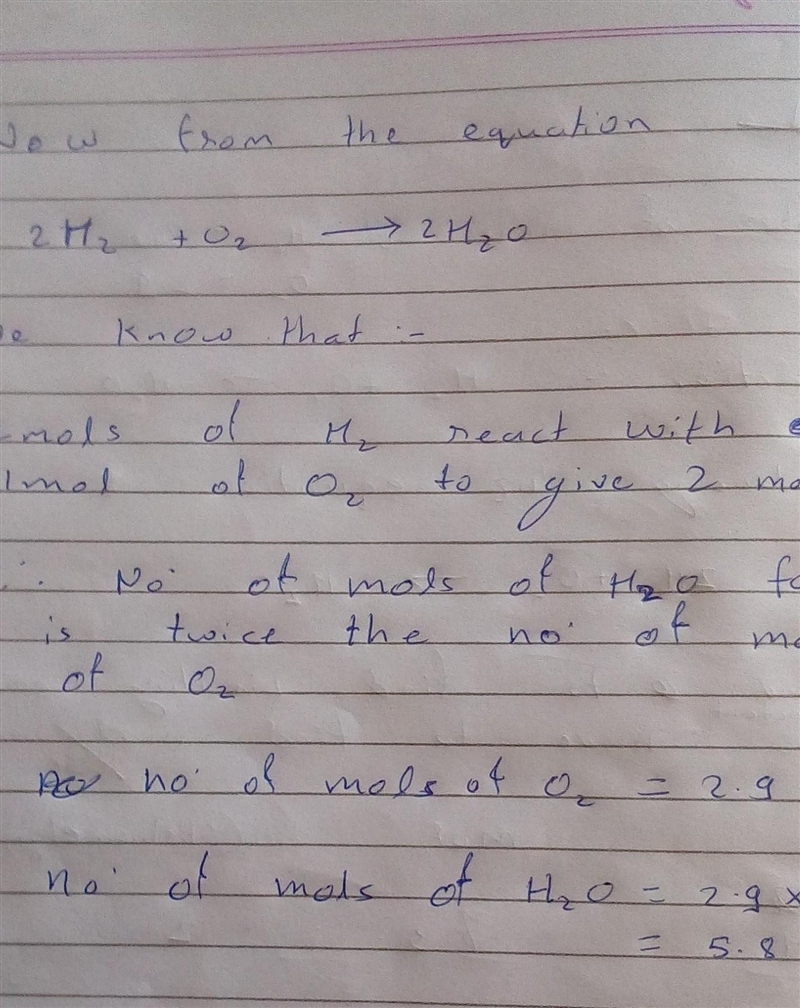 Now from the equation
2H₂ + O₂ ⟶ 2H₂O
know that :-
mols of H₂ react with
1mol of O₂ to give 2
∴ No. of mols of H₂O
is twice the no. of
of O₂
no. of mols of O₂ = 2.9
no. of mols of H₂O = 2.9 ×
= 5.8